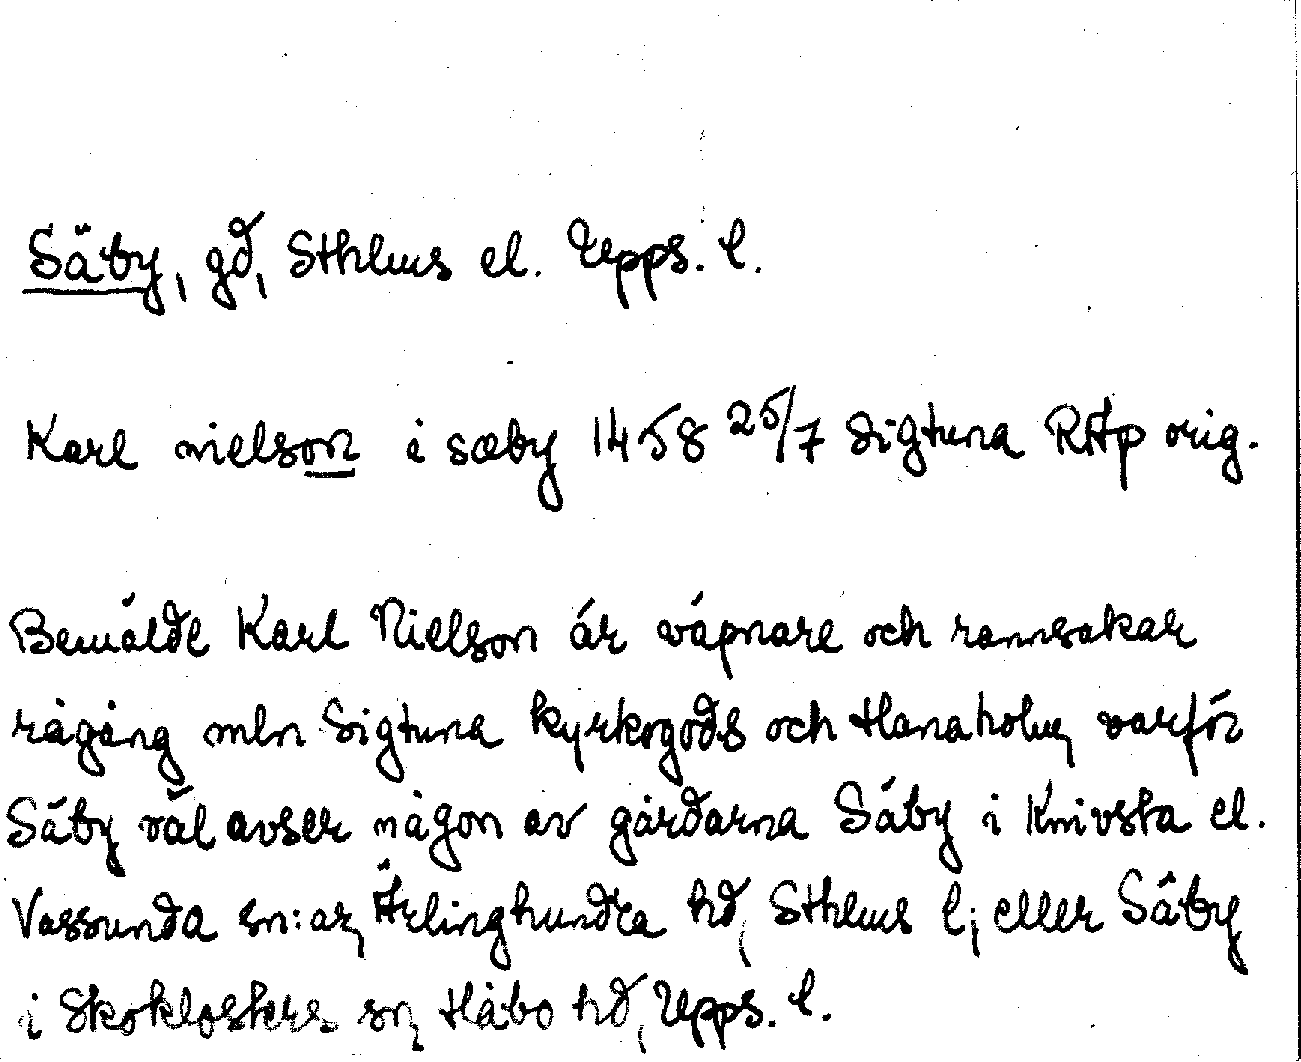 Säby, gd, Sthlms el. Upps. l.
Karl nielson i sæby 1458 25/7 Sigtuna RAp orig.
Bemälde Karl Nielson är väpnare och rannsakar
rågång mln Sigtuna kyrkogods och Hanaholm, varför
Säby väl avser någon av gårdarna Säby i Knivsta el.
Vassunda sn:ar, Ärlinghundra hd, Sthlms l; eller Säby
i Skoklosters sn, Håbo hd, Upps. l.